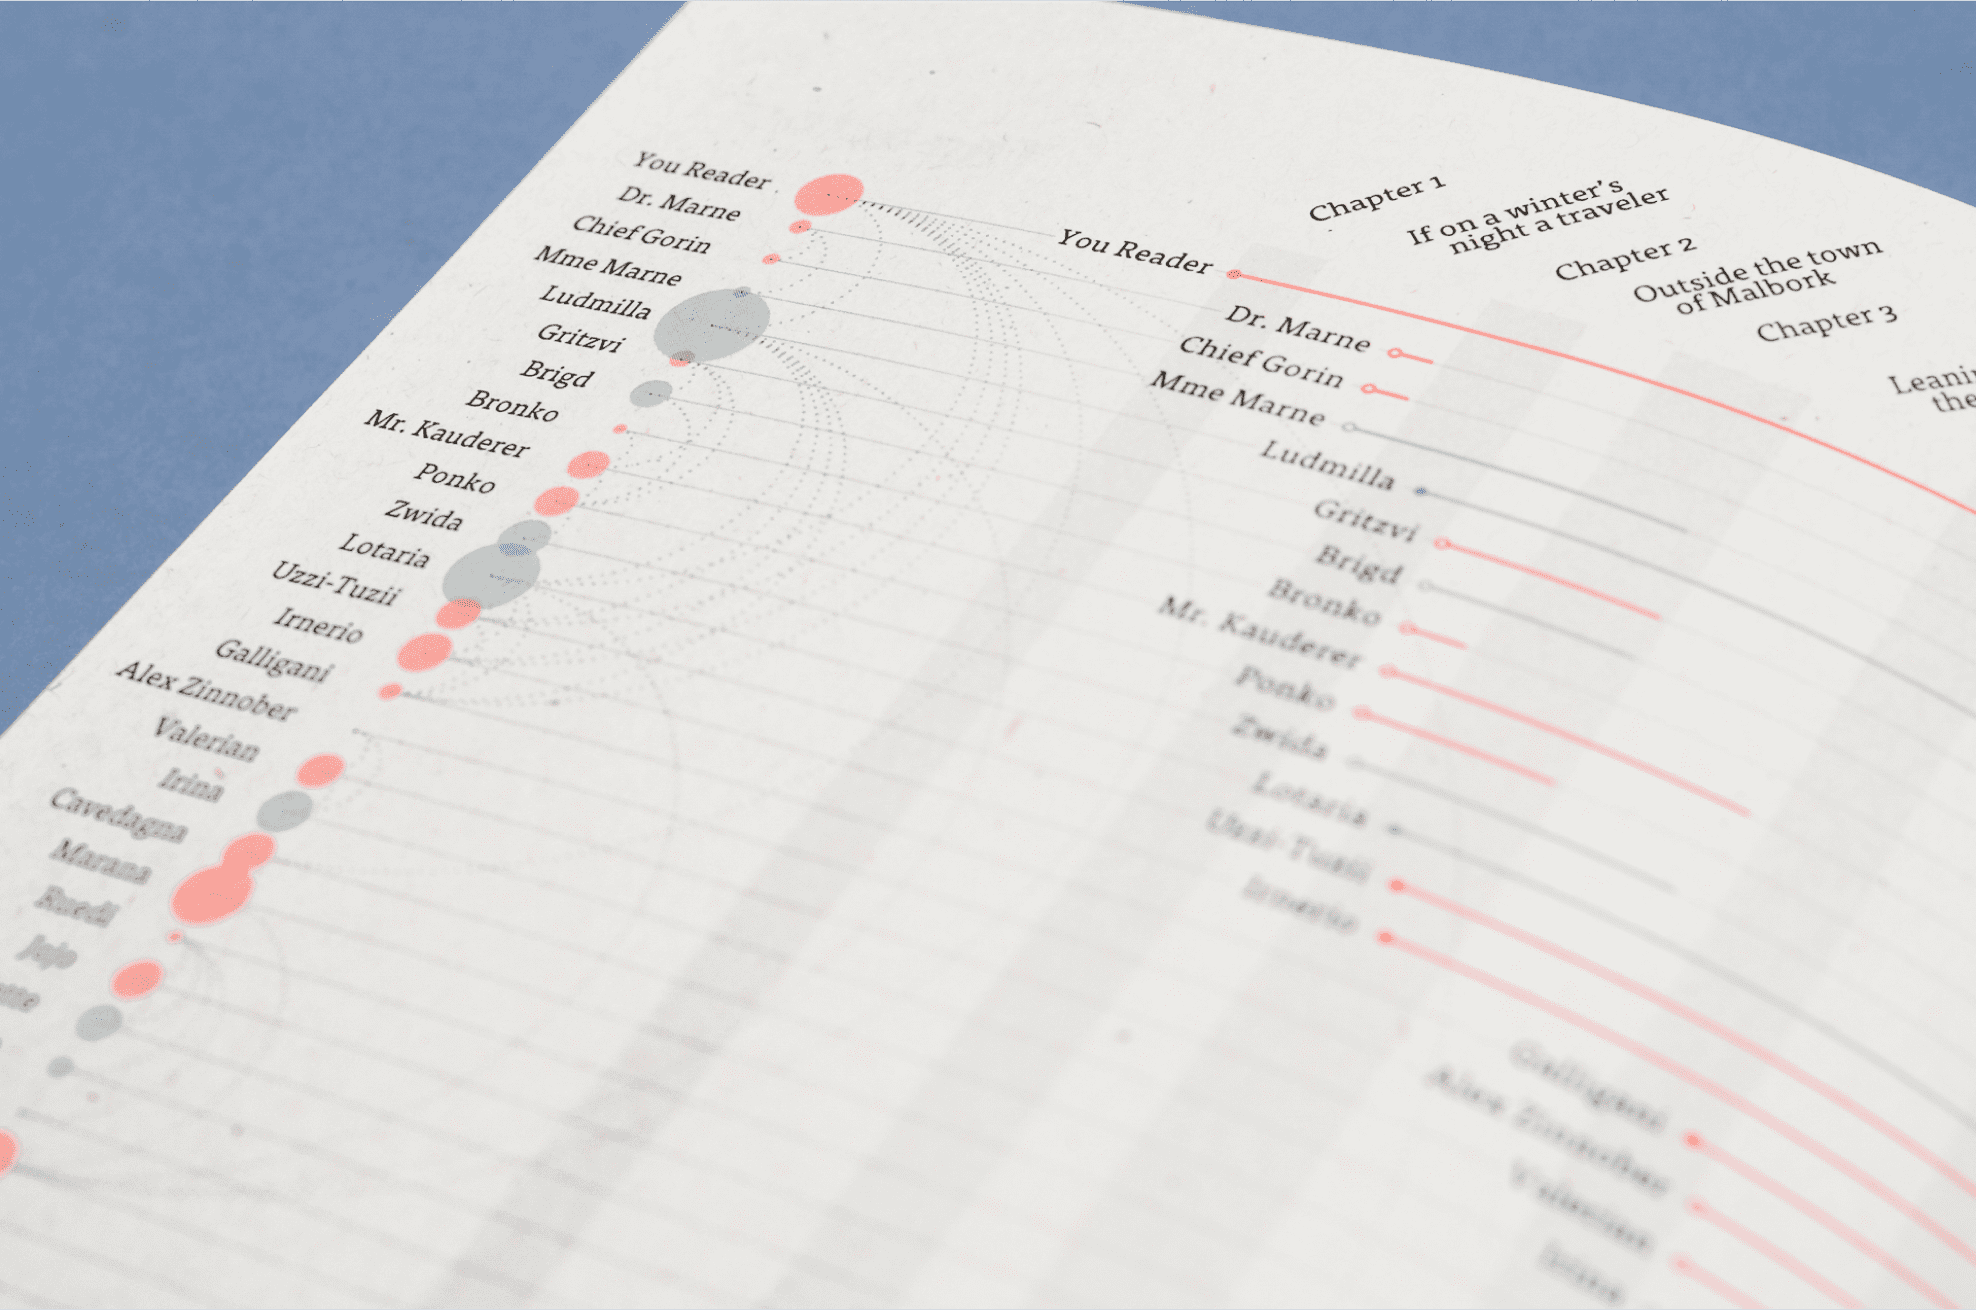 You Reader
Dr. Marne
Chief Gorin
Mme Marne
Ludmilla
Gritzvi
Brigd
Bronko
Mr. Kauderer
Ponko
Zwida
Lotaria
Uzzi-Tuzii
Irnerio
Galligani
Alex Zinnober
Valerian
Irina
Cavedagna
Marana
Ruedi
Jojo
You Reader
Dr. Marne
Chief Gorin
Mme Marne
Ludmilla
Gritzvi
Brigd
Bronko
Mr. Kauderer
Ponko
Zwida
Lotaria
Uzzi-Tuzii
Irnerio
Galligani
Alex Zinnober
Valerian
Irina
Chapter 1
If on a winter's
night a traveler
Chapter 2
Outside the town
of Malbork
Chapter 3
the